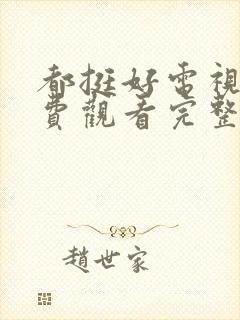 都挺好電視
費觀看完整
趙世家